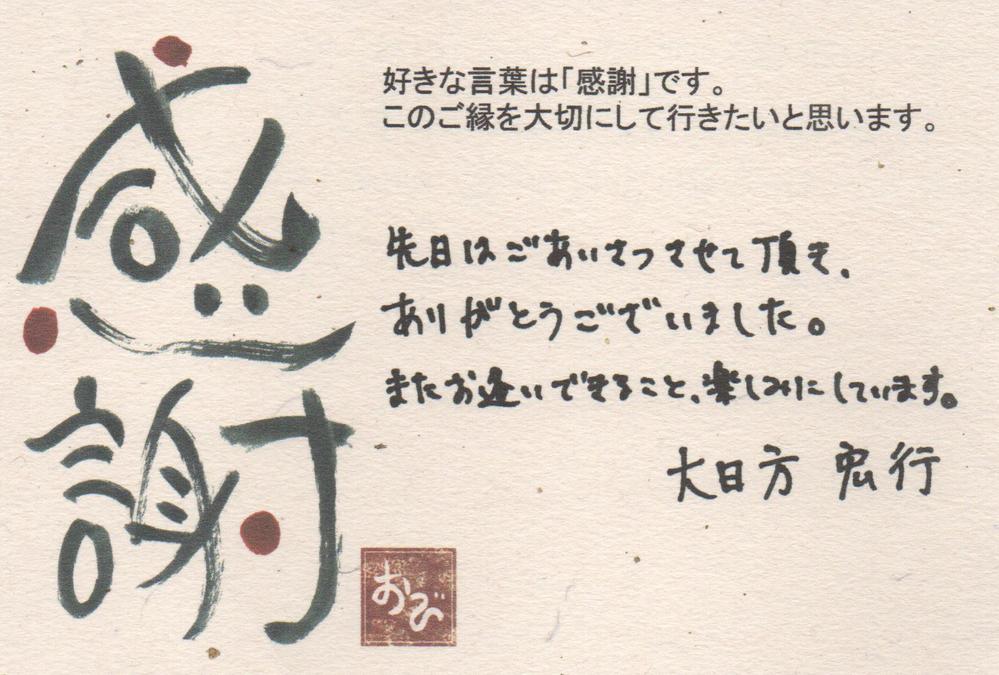 感謝
好きな言葉は「感謝」です。
このご縁を大切にして行きたいと思います。
先日はごあいさつさせて頂き、
ありがとうございました。
またお逢いできること、楽しみにしています。
大日方 宏行
おび